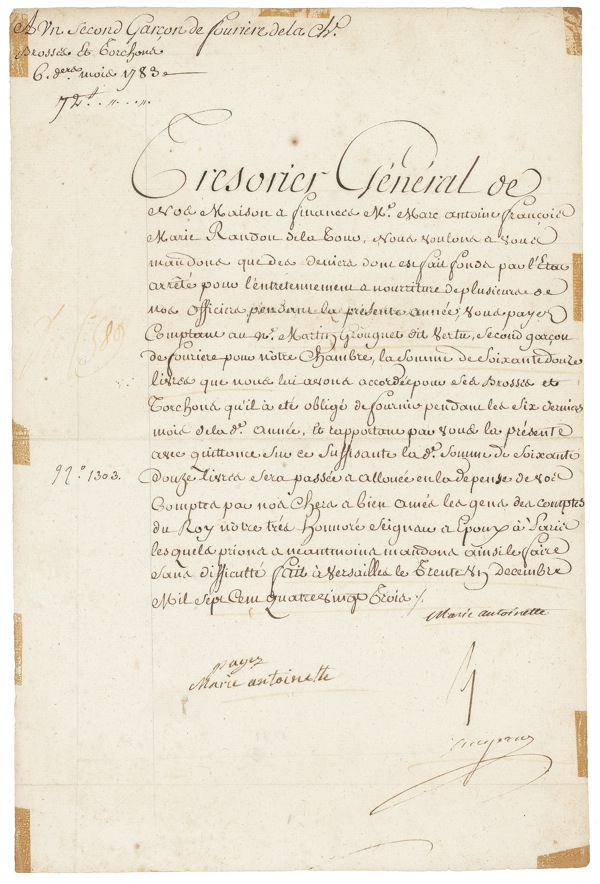 A Vn Second Garçon de fourière de la Ch.e
Brosses et Torchons
6. der.s mois 1783
72.lt . " . . ".
Tresorier Général de
Nos Maison & finances M.e Marc antoine françois
Marie Randon de la Tour, Nous voulons & vous
mandons que des deniers dont est fait fonds par l'Etat
arrêté pour l'entretennement & nourriture de plusieurs de
nos Officiers pendant la présente année, vous payez
Comptant au n.é Martin Grouguet dit Vertu, second garçon
de fourière pour notre Chambre, la somme de Soixante douze
livres que nous lui avons accordée pour ses Brosses et
Torchons qu'il à été obligé de fournir pendant les Six derniers
mois de la d.e année, Et rapportant par vous la présente
avec quittance sur ce suffisante la d.e Somme de Soixante
N.o 1303.
douze Livres sera passée & allouée en la depense de vos
Comptes par nos Chers & bien amés les gens des comptes
du Roy nôtre très Honnoré Seigneur & Epoux à Paris
lesquels prions & néantmoins mandons ainsi le faire
sans difficulté fait à Versailles le Trente Vn decembre
Mil Sept Cent quatrevingt Trois ./.
Marie antoinette
payez
Marie antoinette